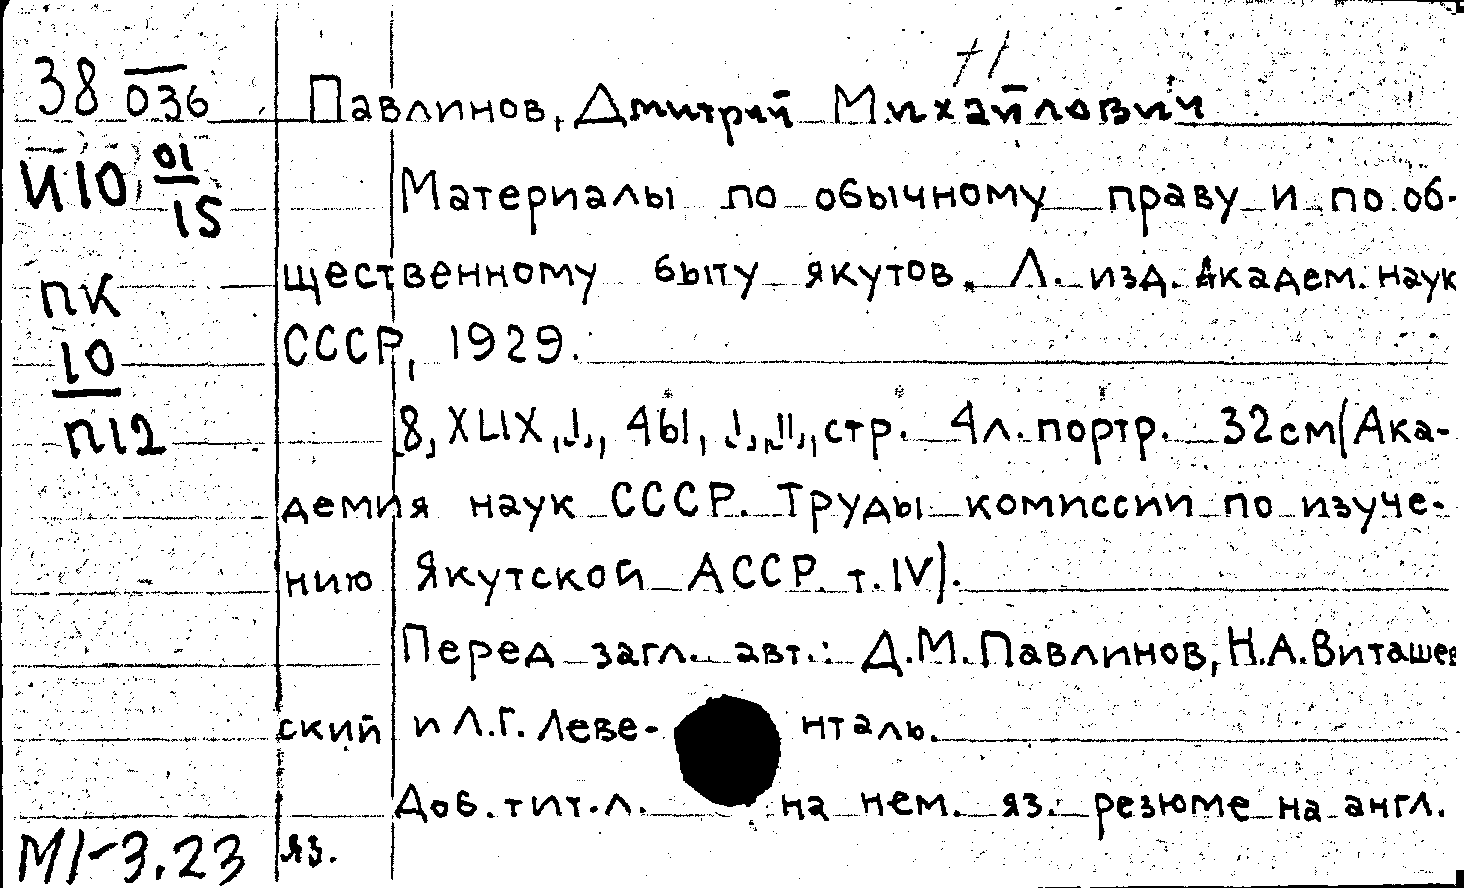 38 036 Павлинов, Дмитрий Михайлович
И10 01/15 Материалы по обычному праву и по об-
щественному быту якутов. Л. изд. Академ. наук
ПК
10 СССР, 1929.
П12 [8, XLIX, I, 461, I, II, стр. 4л. портр. 32см (Ака-
демия наук СССР. Труды комиссии по изуче-
нию Якутской АССР т. IV).
Перед загл. авт.: Д.М. Павлинов, Н.А. Виташев
ский и Л.Г. Леве- нталь.
Доб. тит. л. на нем. яз. резюме на англ.
М1-3.23 яз.